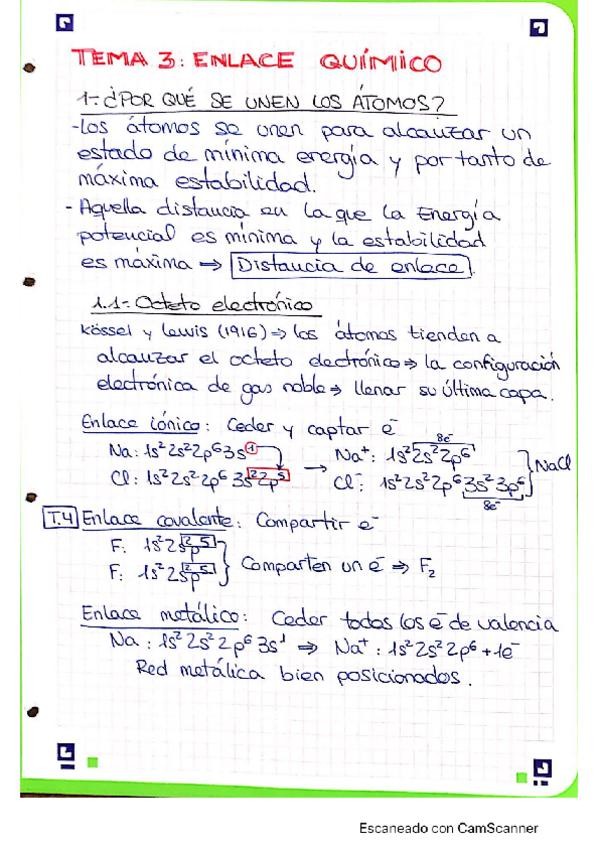 TEMA 3: ENLACE QUÍMICO
1-¿POR QUÉ SE UNEN LOS ÁTOMOS?
-Los átomos se unen para alcanzar un
estado de mínima energía y por tanto de
máxima estabilidad.
- Aquella distancia en la que la Energía
potencial es mínima y la estabilidad
es máxima → Distancia de enlace.
1.1- Octeto electrónico
Kössel y Lewis (1916) ⇒ los átomos tienden a
alcanzar el octeto electrónico ⇒ la configuración
electrónica de gas noble ⇒ llenar su última capa.
Enlace iónico: Ceder y captar e⁻
Na: 1s²2s²2p⁶3s¹ → Na⁺: 1s²2s²2p⁶ 8e⁻
Cl: 1s²2s²2p⁶3s²2p⁵ Cl⁻: 1s²2s²2p⁶3s²3p⁶ 8e⁻ } NaCl
T.4 Enlace covalente: Compartir e⁻
F: 1s²2s²p⁵
F: 1s²2s²p⁵ } Comparten un e⁻ ⇒ F₂
Enlace metálico: Ceder todos los e⁻ de valencia
Na: 1s²2s²2p⁶3s¹ ⇒ Na⁺: 1s²2s²2p⁶+1e⁻
Red metálica bien posicionados.
Escaneado con CamScanner